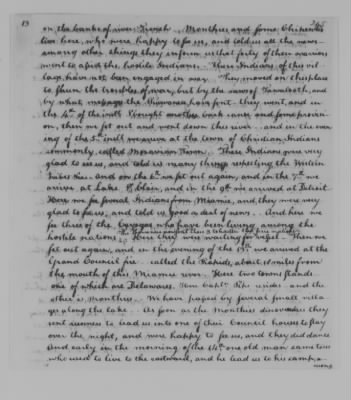 13
on, the banks of river French. Monthees and some Chipewas
live here, who were happy to see us, and told us all the news
among other things they inform us that forty of these warriors
went to assist the hostile Indians. These Indians of this vil-
lage, have not been engaged in war. They moved on this place
to shun the troubles of war, but by the
by what message the Shawanese have sent they went, and in
the 4th of the inst. bought another bark canoe and some provisi-
on, then we set out and went down the river and in the even
ing of the 5th inst. we arrive at the town of Christian Indians
commonly called Moravian Town. These Indians were very
glad to see us, and told us many things respecting the Western
tribes &c. and on the 6th we set out again, and in the 7th we
arrive at Lake St. Clair, and in the 9th we arrived at Detroit.
Here we see several Indians from Miamie, and they were very
glad to see us, and told us good a deal of news. And here we
see three of the who have been being among the
hostile nations. Here they were waiting for vessel. Then we
set out again, and in the evening of the 13th we arrived at the
Grand Council fire called the Rapids, about 18 miles from
the mouth of this Miamie river. Here two towns stands
one of which are Delawares. How Capt. Pipe resides and the
other is Monthees. We have passed by several small villa-
ges along the lake. As soon as the Monthees discovered they
sent runners to lead us into one of their Council houses to stay
over the night, and were happy to see us, and they did dance
And early in the morning of the 14th one old man came to us
who used to live to the eastward, and he lead us to his camp, a-
mong